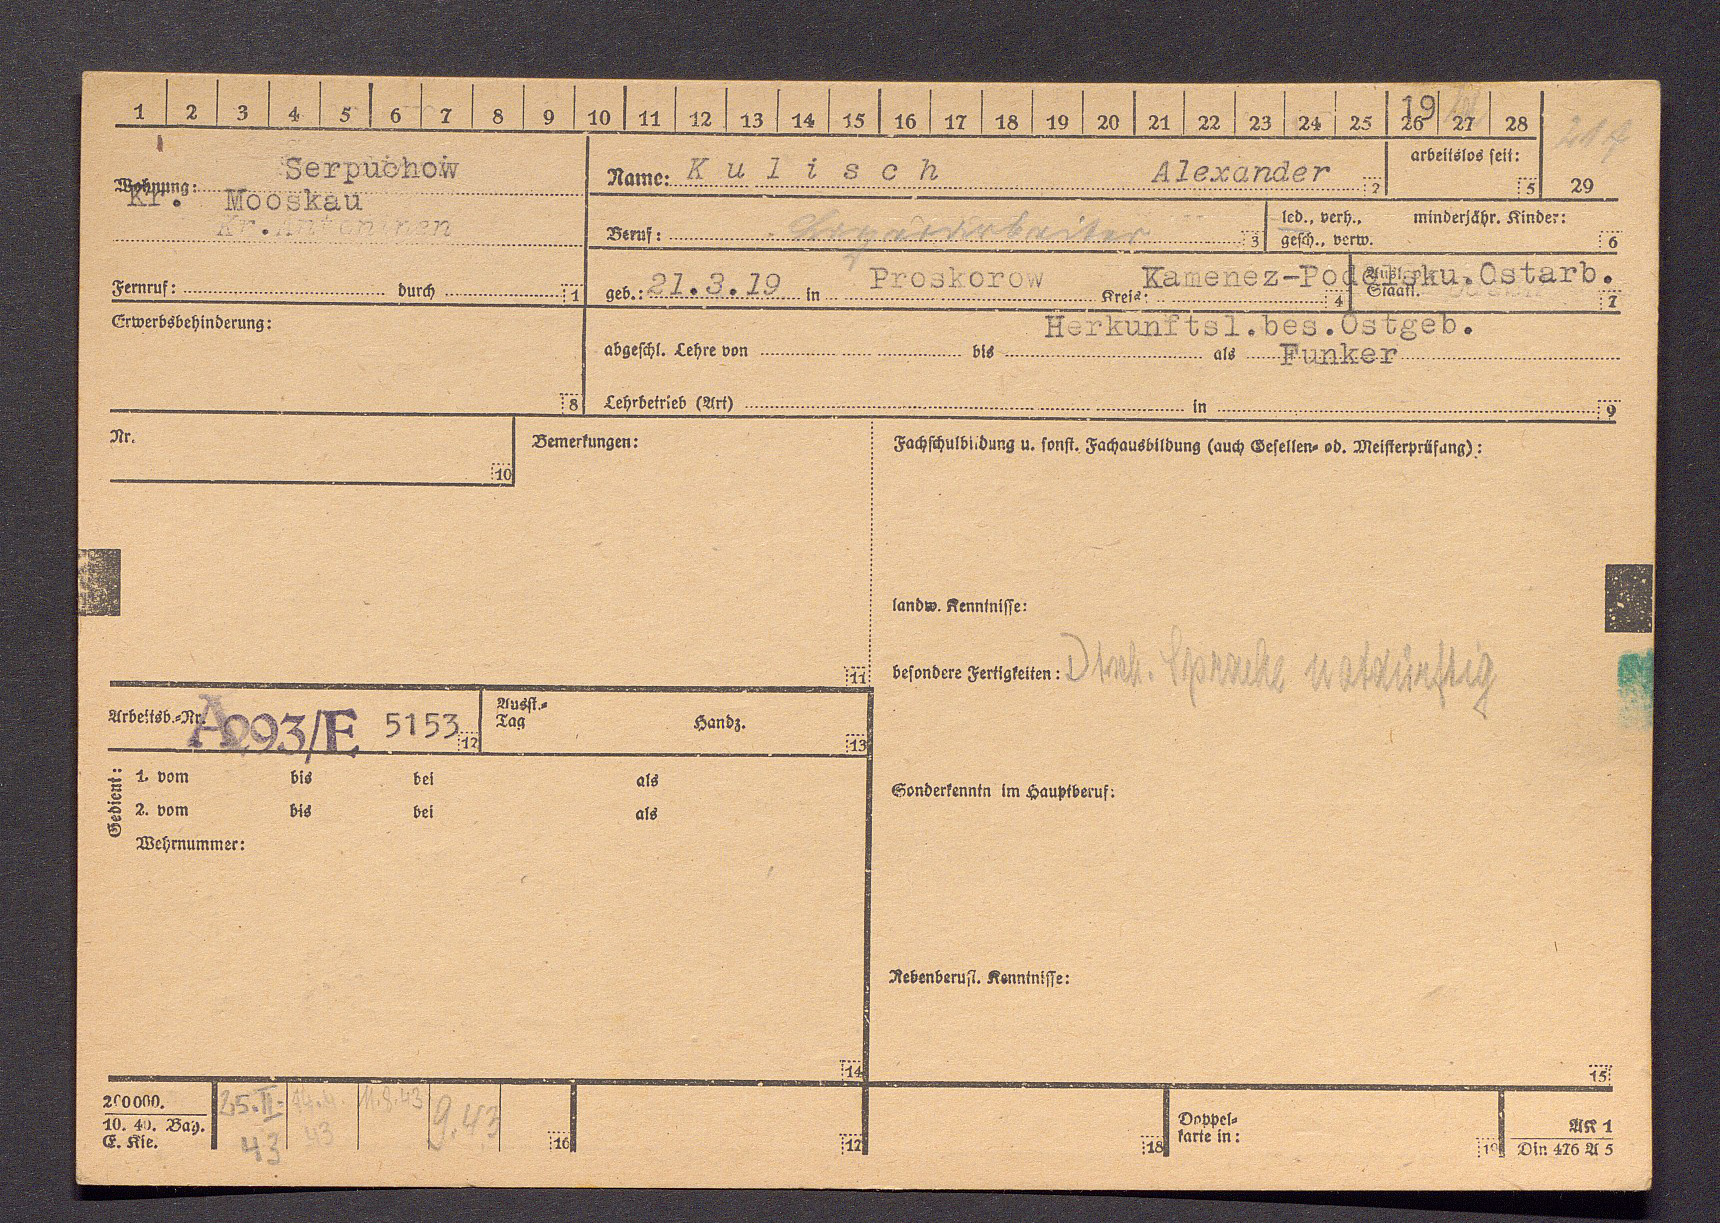 1 2 3 4 5 6 7 8 9 10 11 12 13 14 15 16 17 18 19 20 21 22 23 24 25 26 27 28
19
Serpuchow
Wohnung:
Kr. Mooskau
Kr. Antoninen
Name: Kulisch Alexander 2
arbeitslos seit:
5 29
Beruf: 3
led., verh., minderjähr. Kinder:
gesch., verw. 6
Fernruf: durch 1
geb.: 21.3.19 in Proskorow Kreis: Kamenez-Podolsku. Ostarb. 4
Staatl. 7
Erwerbsbehinderung:
8
Herkunftsl.bes.Ostgeb.
abgeschl. Lehre von bis als Funker
Lehrbetrieb (Art) in 9
Nr.
10
Bemerkungen:
11
Fachschulbildung u. sonst. Fachausbildung (auch Gesellen- od. Meisterprüfung):
landw. Kenntnisse:
besondere Fertigkeiten: Dtsch. Sprache notdürftig
Arbeitsb.-Nr. A293/E 5153 12
Ausst.-
Tag Handz.
13
Gedient:
1. vom bis bei als
2. vom bis bei als
Wehrnummer:
14
Sonderkenntn im Hauptberuf:
Nebenberufl. Kenntnisse:
15
200000.
10. 40. Bay.
E. Kie.
25.II.
43
14.4.
43
11.8.43
9.43
16 17 18
Doppel-
karte in:
19
AK 1
Din 476 A 5